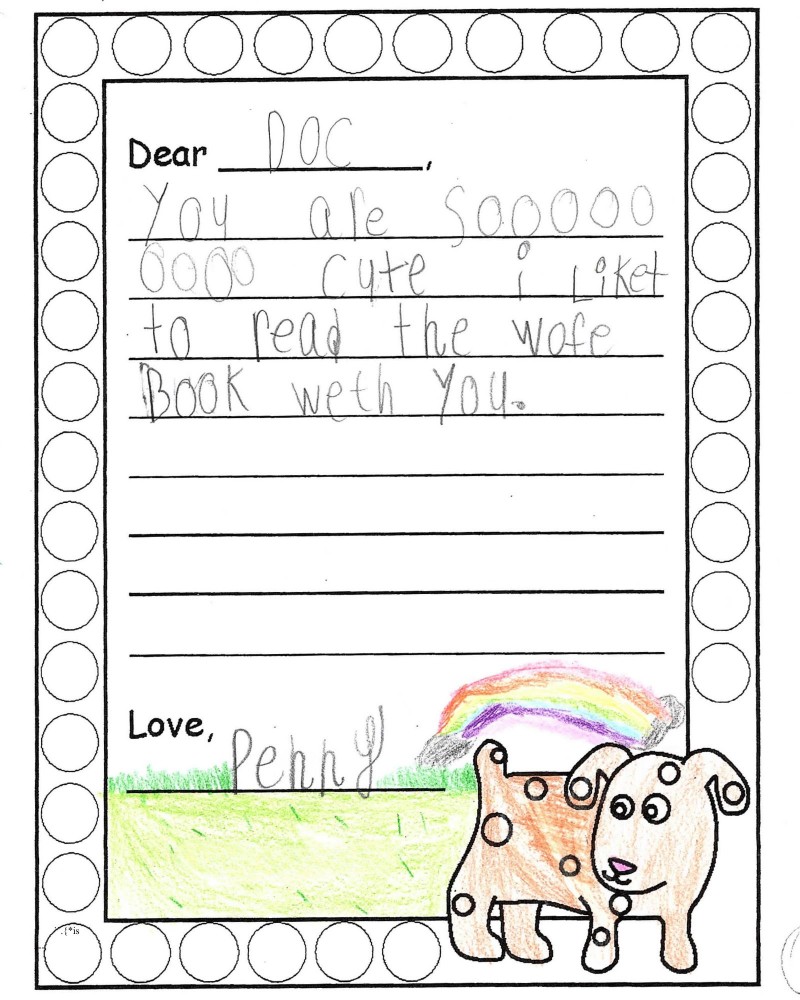 Dear DOC,
You are SOOOOO
OOOO cute i Liket
to read the wofe
BOOK weth You.
Love, Penny